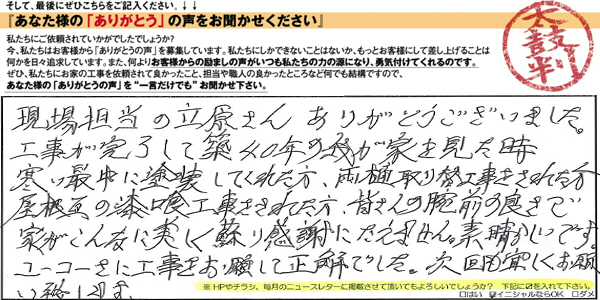 そして、最後にぜひこちらをご記入ください。↓↓
『あなた様の「ありがとう」の声をお聞かせください』
私たちにご依頼されていかがでしたでしょうか?
今、私たちはお客様から「ありがとうの声」を募集しています。私たちにしかできないことはないか、もっとお客様にして差し上げることは
何かを日々追求しています。また、何よりお客様からの励ましの声がいつも私たちの力の源になり、勇気付けてくれるのです。
ぜひ、私たちにお家の工事を依頼されて良かったこと、担当や職人の良かったところなど何でも結構ですので、
あなた様の「ありがとうの声」を"一言だけでも"お聞かせ下さい。
太鼓判
現場担当の立原さん ありがとうございました。
工事が完了して築40年の我が家を見た時
寒い最中に塗装してくれた方、雨樋取り替工事をされた方
屋根瓦の漆喰工事をされた方、皆さんの腕前の良さで
家がこんなに美しく蘇り感謝にたえません。素晴らしいです。
ユーコーさんに工事をお願して正解でした。次回も宜しくお願
い致します。
※HPやチラシ、毎月のニュースレターに掲載させて頂いてもよろしいでしょうか? 下記に☑を入れて下さい。
□はい ☑イニシャルならOK □ダメ